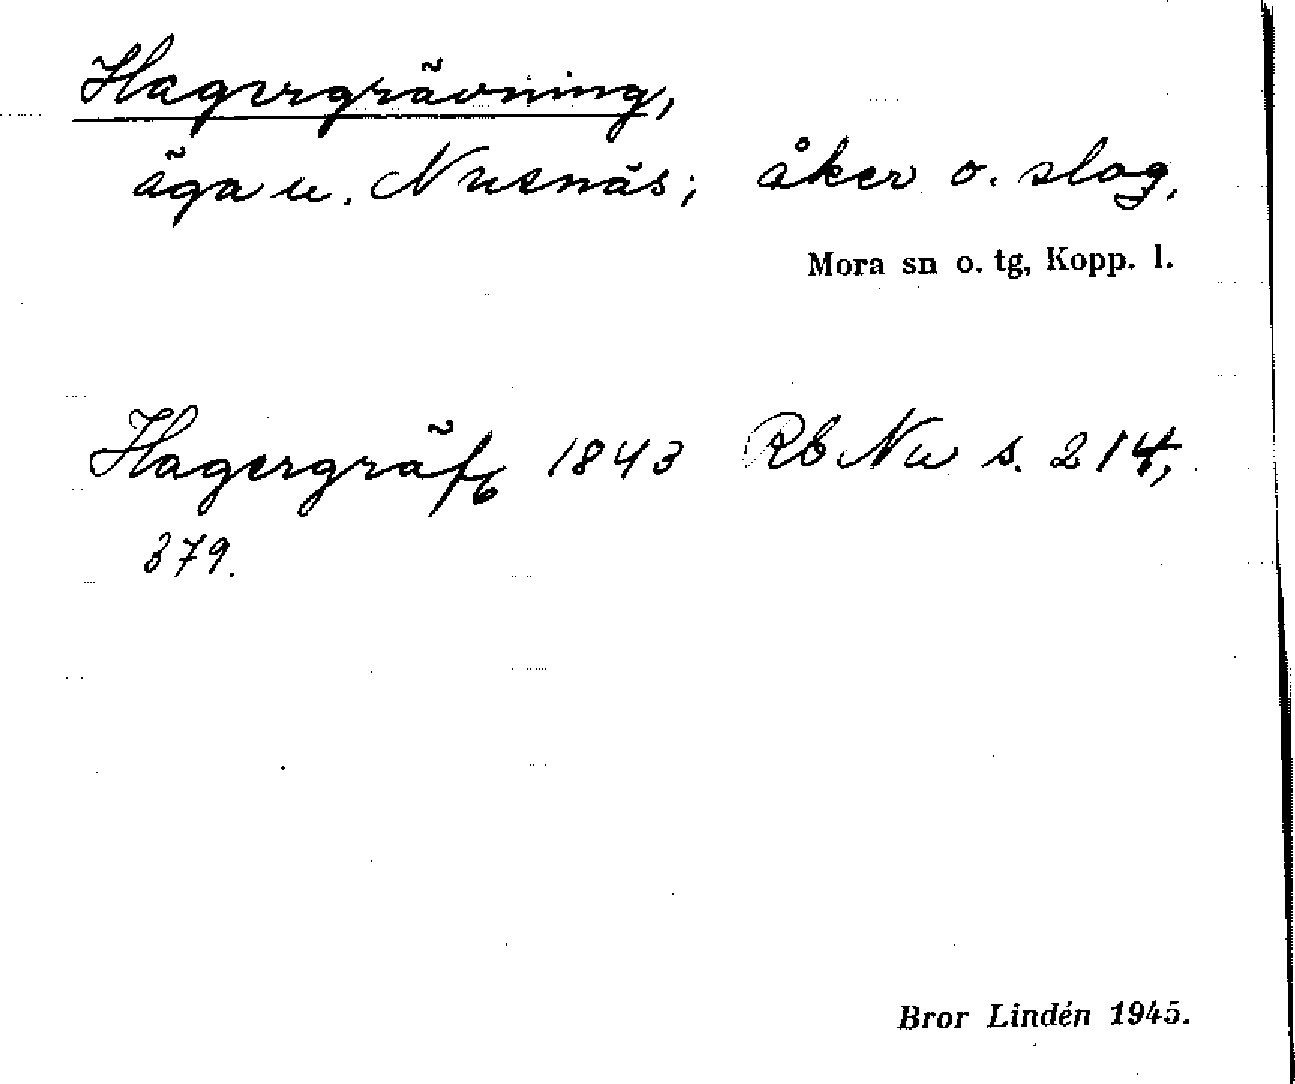 Hagergrävning,
äga u. Nusnäs; åker o. slog.
Mora sn o. tg, Kopp. l.
Hagergräfg 1843 Rb Nu s. 214,
379.
Bror Lindén 1945.